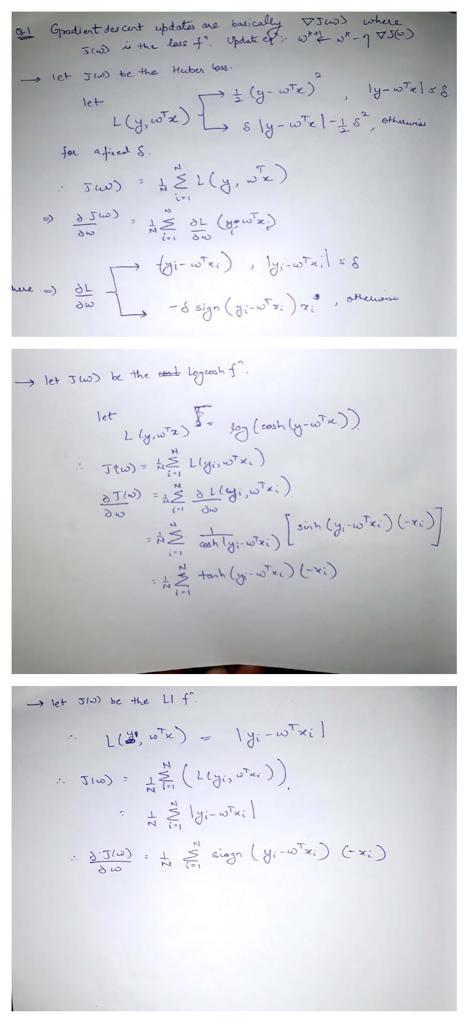 Q.1 Gradient descent updates are basically ∇J(w) where
J(w) is the loss fⁿ. Update eqⁿ:- w^{k+1} ← w^k - η ∇J(w)
→ let J(w) be the Huber loss.
let
L(y, wᵀx) → ½ (y - wᵀx)² , |y - wᵀx| ≤ δ
→ δ |y - wᵀx| - ½ δ², otherwise
for a fixed δ.
∴ J(w) = 1/N Σ_{i=1}^{N} L(y, wᵀx)
⇒ ∂J(w)/∂w = 1/N Σ_{i=1}^{N} ∂L/∂w (y_i, wᵀx_i)
here ⇒ ∂L/∂w → -(y_i - wᵀx_i) , |y_i - wᵀx_i| ≤ δ
→ -δ sign (y_i - wᵀx_i) x_i , otherwise
→ let J(w) be the Logcosh fⁿ.
let
L(y, wᵀx) = log (cosh (y - wᵀx))
∴ J(w) = 1/N Σ_{i=1}^{N} L(y_i, wᵀx_i)
∂J(w)/∂w = 1/N Σ_{i=1}^{N} ∂L(y_i, wᵀx_i)/∂w
= 1/N Σ_{i=1}^{N} 1/cosh(y_i - wᵀx_i) [sinh (y_i - wᵀx_i) (-x_i)]
= 1/N Σ_{i=1}^{N} tanh (y_i - wᵀx_i) (-x_i)
→ let J(w) be the L1 fⁿ
∴ L(y, wᵀx) = |y_i - wᵀx_i|
∴ J(w) = 1/N Σ_{i=1}^{N} (L(y_i, wᵀx_i)).
= 1/N Σ_{i=1}^{N} |y_i - wᵀx_i|
∴ ∂J(w)/∂w = 1/N Σ_{i=1}^{N} siogn (y_i - wᵀx_i) (-x_i)